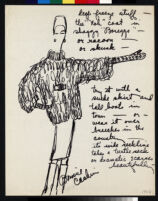 deep-freeze stuff —
the "fun" coat in
shaggy Borego —
or racoon
or skunk —
try it with a
suede skirt and
tall boots in
town — or —
wear it over
breeches in the
country
its wide neckline
take a turtle neck
or dramatic scarves
beautifully —
Bonnie
Cashin